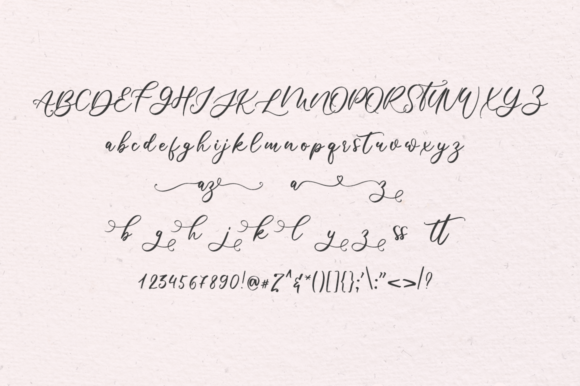 ABCDEFGHIJKLMNOPQRSTUVWXYZ
abcdefghijklmnopqrstuvwxyz
az a z
b g h j k l y z ss tt
1234567890!@#Z^&*()[]{};'\:"<>/?